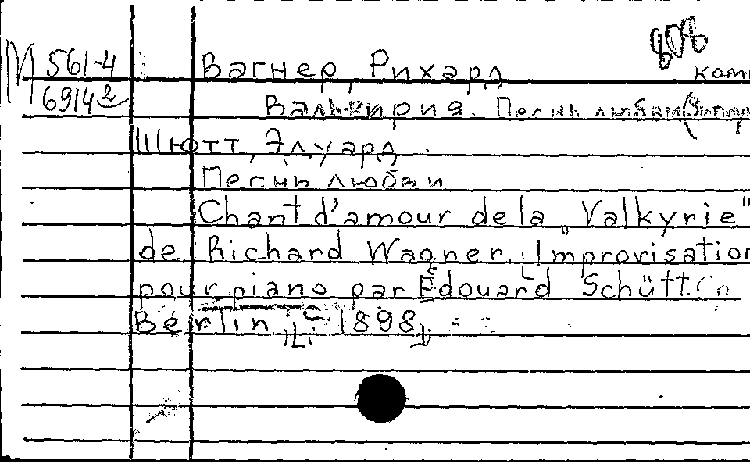 808
М 561-4 Вагнер, Рихард комп
6914 Валькирия. Песнь любви
Шютт, Эдуард
Песнь любви
Chant d'amour de la „Valkyrie"
de Richard Wagner. Improvisation
pour piano par Edouard Schütt.
Berlin, 1898